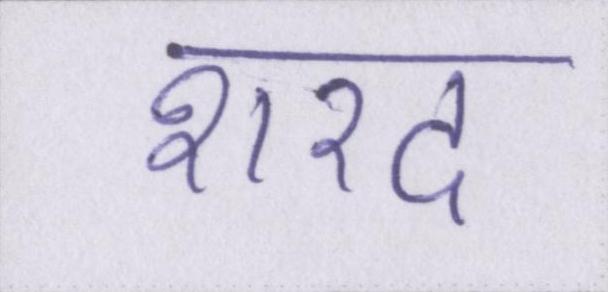 शरद